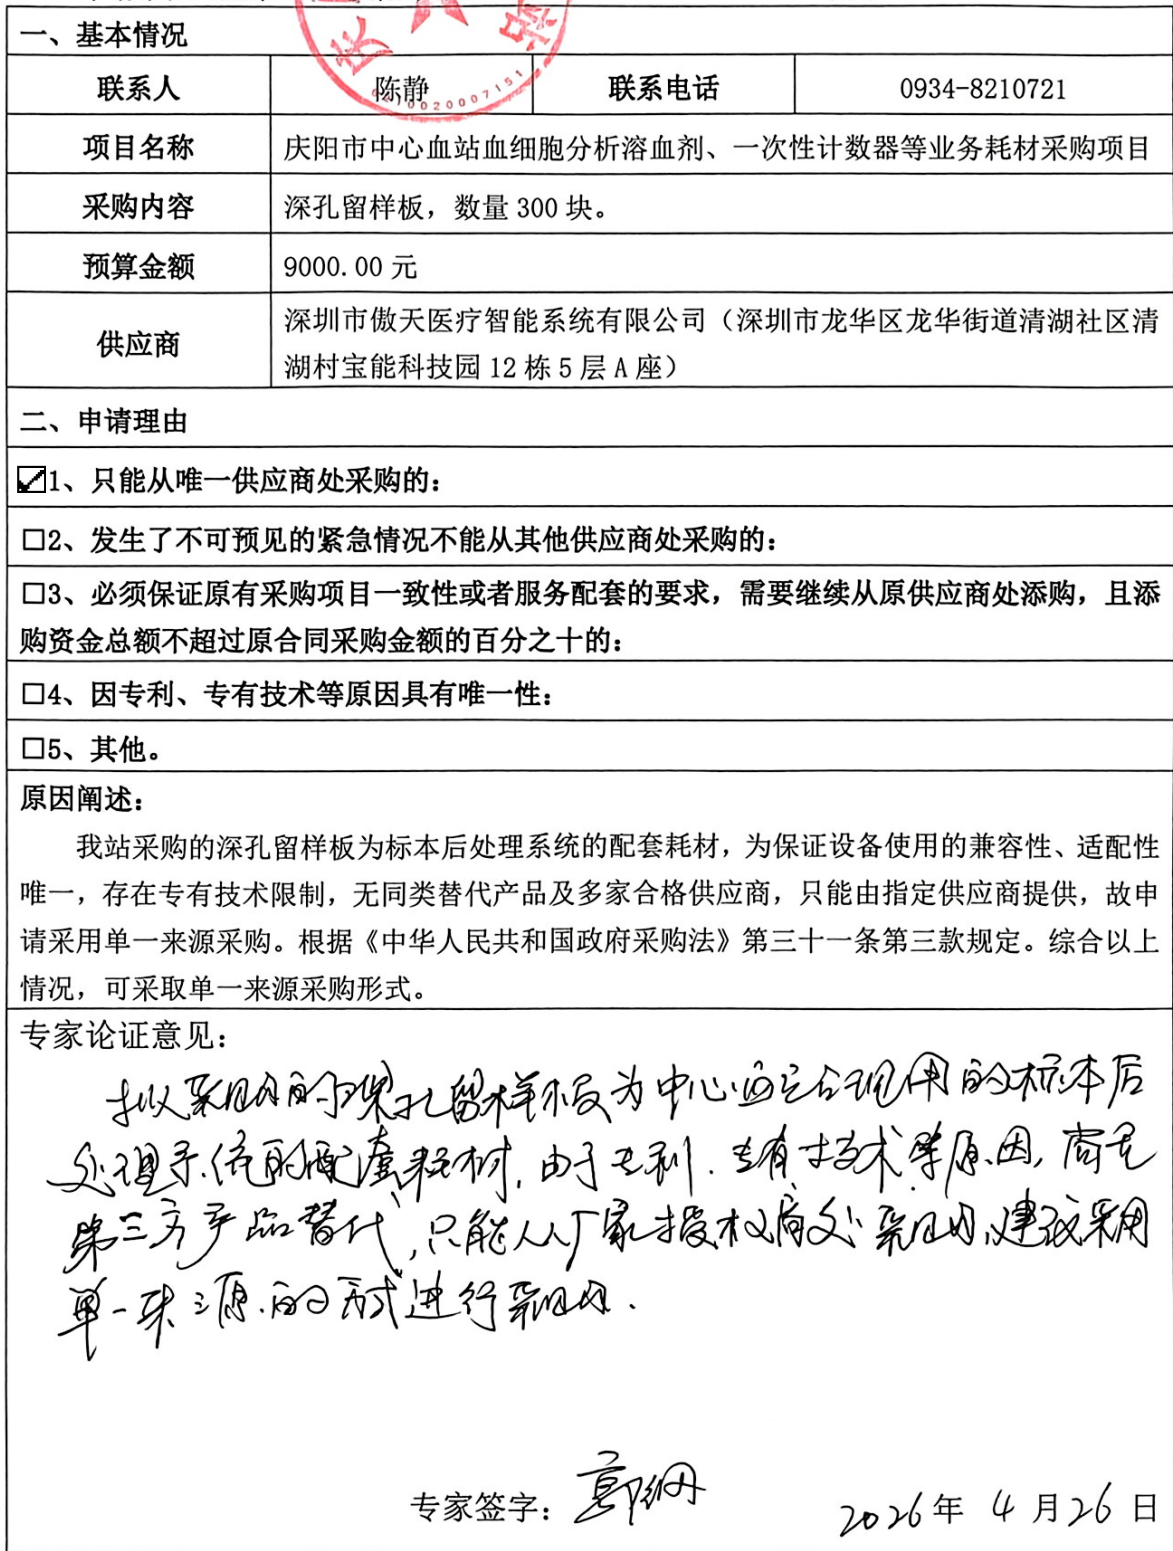 一、基本情况
联系人 陈静 联系电话 0934-8210721
项目名称 庆阳市中心血站血细胞分析溶血剂、一次性计数器等业务耗材采购项目
采购内容 深孔留样板，数量 300 块。
预算金额 9000.00 元
供应商 深圳市傲天医疗智能系统有限公司（深圳市龙华区龙华街道清湖社区清
湖村宝能科技园 12 栋 5 层 A 座）
二、申请理由
☑1、只能从唯一供应商处采购的：
□2、发生了不可预见的紧急情况不能从其他供应商处采购的：
□3、必须保证原有采购项目一致性或者服务配套的要求，需要继续从原供应商处添购，且添
购资金总额不超过原合同采购金额的百分之十的：
□4、因专利、专有技术等原因具有唯一性：
□5、其他。
原因阐述：
我站采购的深孔留样板为标本后处理系统的配套耗材，为保证设备使用的兼容性、适配性
唯一，存在专有技术限制，无同类替代产品及多家合格供应商，只能由指定供应商提供，故申
请采用单一来源采购。根据《中华人民共和国政府采购法》第三十一条第三款规定。综合以上
情况，可采取单一来源采购形式。
专家论证意见：
拟采购的深孔留样板为中心血站现用的标本后
处理系统的配套耗材，由于专利、专有技术等原因，尚无
第三方产品替代，只能从厂家授权商处采购，建议采用
单一来源的方式进行采购.
专家签字：
2026年 4 月26 日